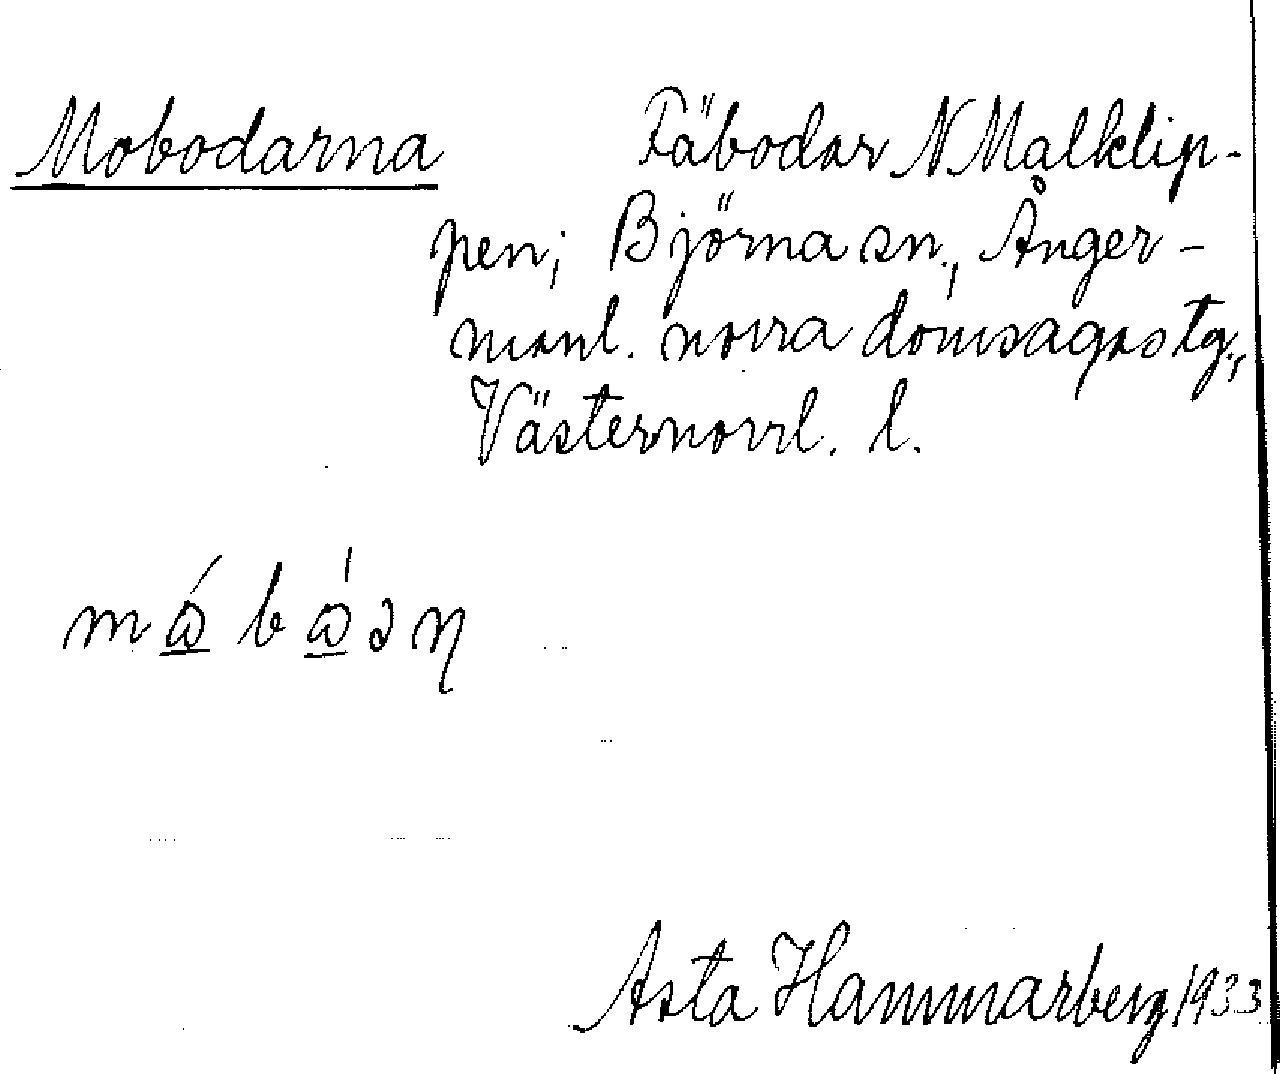 Mobodarna Fäbodar N Malklip-
pen; Björna sn., Ånger-
manl. norra domsagas tg.,
Västernorrl. l.
Asta Hammarberg 1933